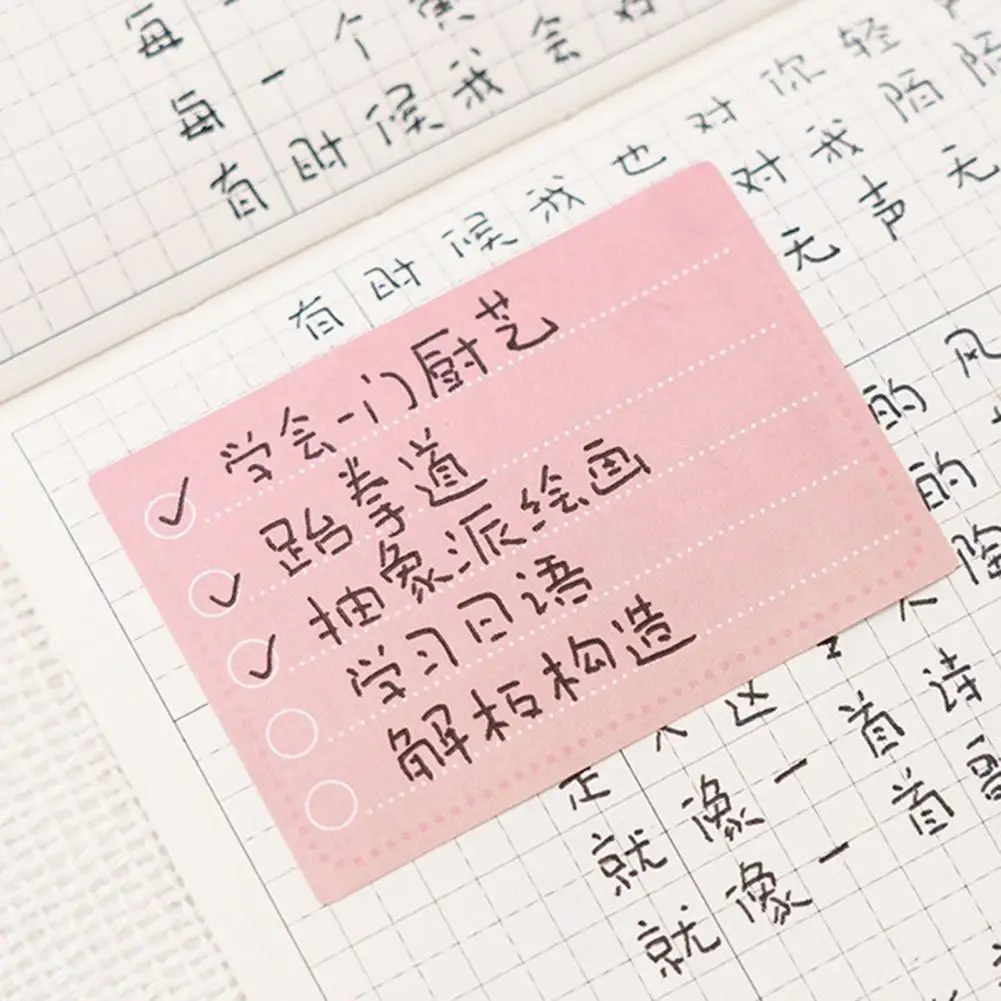 每
每 一 个
有时候我会
有时候我也对你轻
对我陌陌
无声无
学会一门厨艺
跆拳道
抽象派绘画
学习日语
解析构造
的风
的
的
这 一首诗
就像一首
就像一首